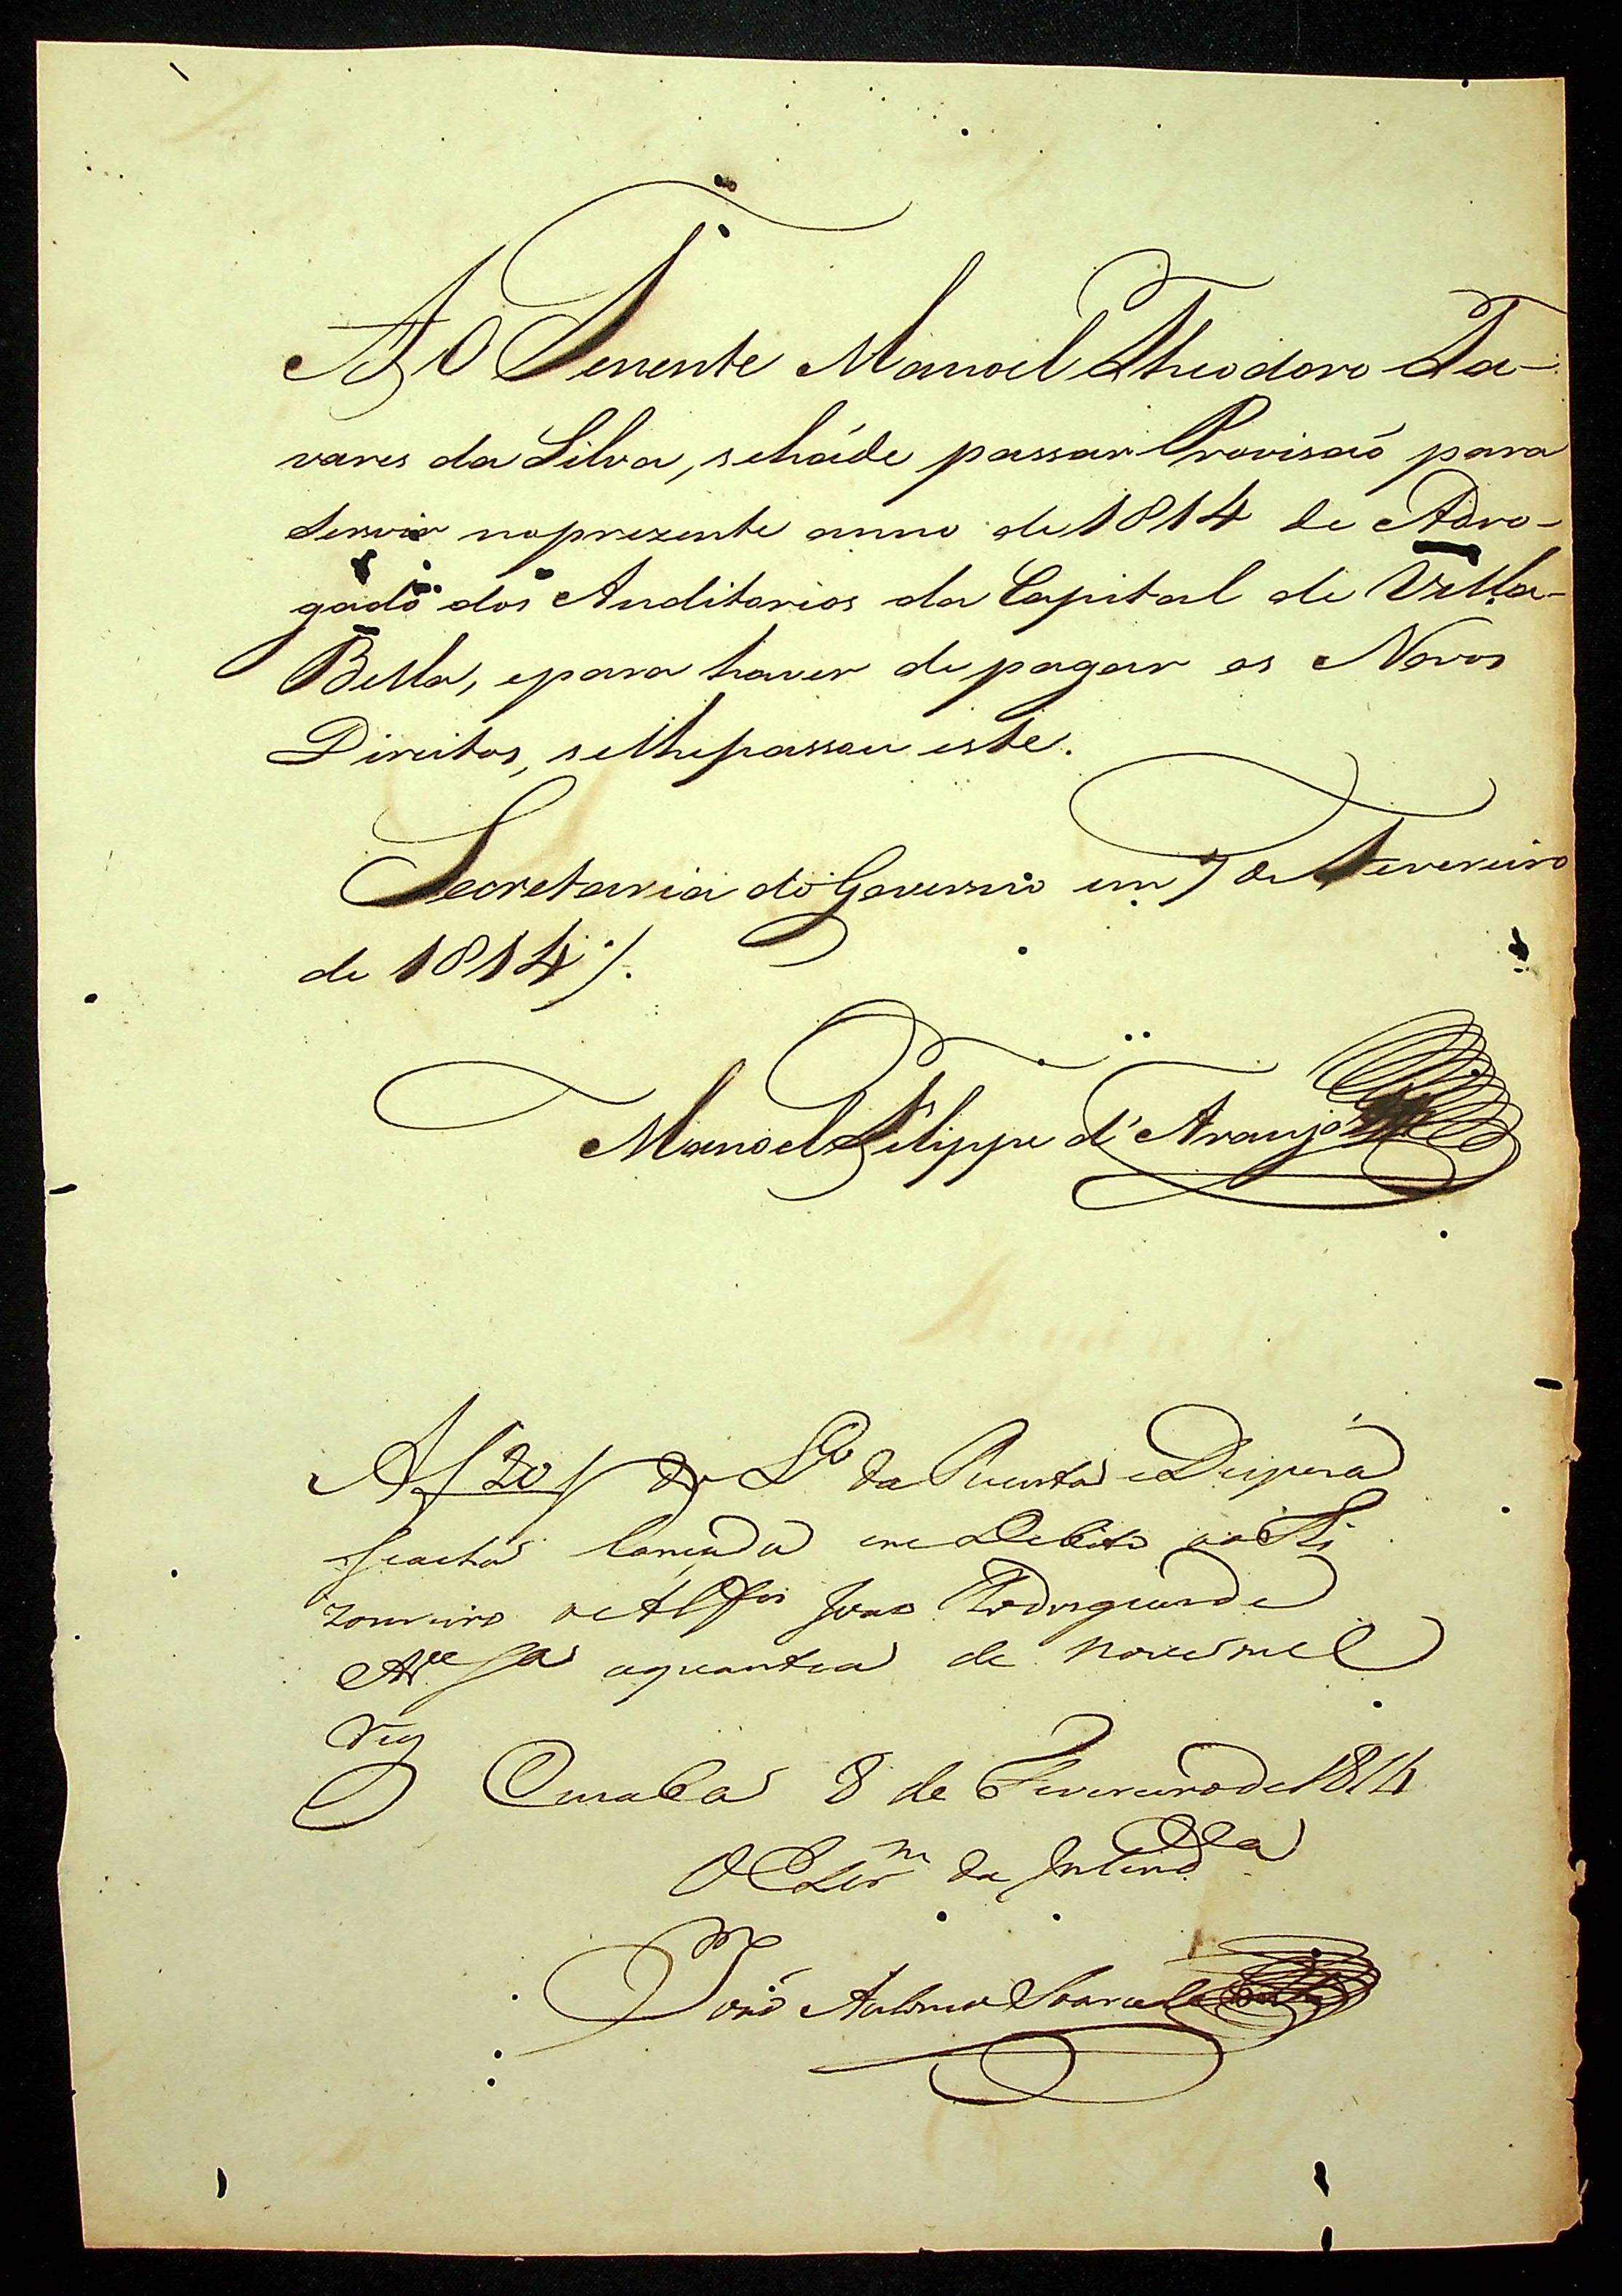 Ao Tenente Manoel Theodoro Ta-
vares da Silva, sehá de passar Provisaõ para
servir noprezente anno de 1814 de Advo-
gado dos Auditorios da Capital de Villa-
Bella, epara haver de pagar os Novos
Direitos, selhepassou este.
Secretaria do Governo em 7 de Fevereiro
de 1814 /.
Manoel Filippe d'Araujo
Af 20 do L.o da Receita e Despeza
seacha lançada em Debito ao The
zoureiro o Alferes João Rodrigues de
aquantia de nove mil
reis
Cuiaba 8 de Fevereiro de 1814
O Escr.m da Intend.a
João Antonio Soares